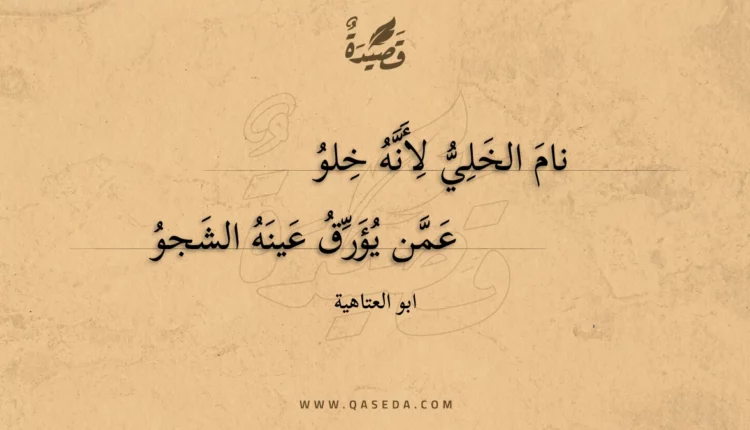 قَصِيْدَةٌ
نامَ الخَلِيُّ لِأَنَّهُ خِلوُ
عَمَّن يُؤَرِّقُ عَينَهُ الشَجوُ
ابو العتاهية
WWW.QASEDA.COM